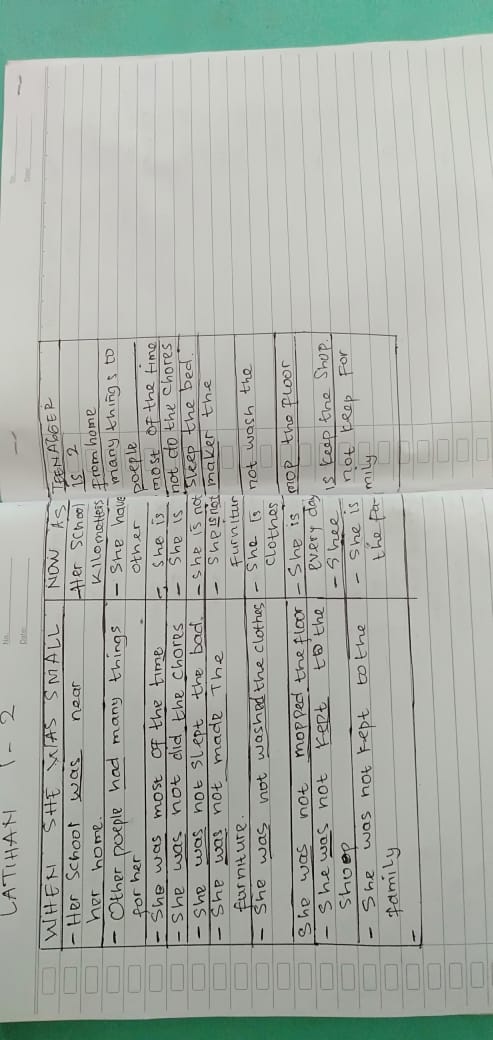 No.
Date
LATIHAN 1-2
WHEN SHE WAS SMALL
- Her School was near
her home.
- Other poeple had many things
for her
- She was most of the time
- She was not did the chores
- She was not slept the bad.
- She was not made The
furniture.
- She was not washed the clothes
She was not mopped the floor
- She was not kept to the
shoop
- She was not kept to the
family
-
NOW AS TEENABGER
- Her School is 2
Kilomatters from home
- She have many things to
other poeple
- She is most of the time
- She is not do the chores
- She is not sleep the bed.
- She is not maker the
furnitur
- She is not wash the
clothes
- She is mop the floor
every day
- Shee is keep the shop.
- She is not keep for
the fa mily